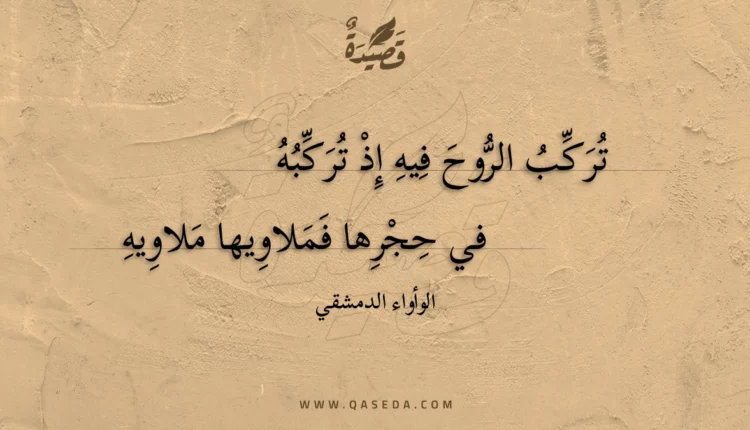 قَصِيدَةٌ
تُرَكِّبُ الرُّوحَ فِيهِ إِذْ تُرَكِّبُهُ
في حِجْرِها فَمَلاوِيها مَلاوِيهِ
الوأواء الدمشقي
WWW.QASEDA.COM